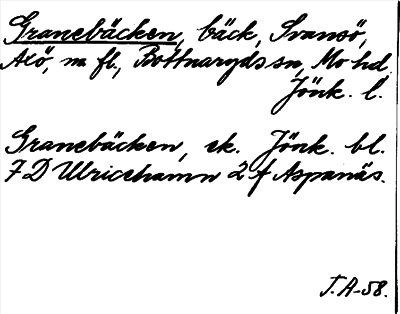 Granebäcken, bäck, Svansö,
Alö, m fl., Bottnaryds sn, Mo hd.
Jönk. l.
Granebäcken, ek. Jönk. bl.
7 D Ulricehamn 2 f Aspanäs.
T. A-58.